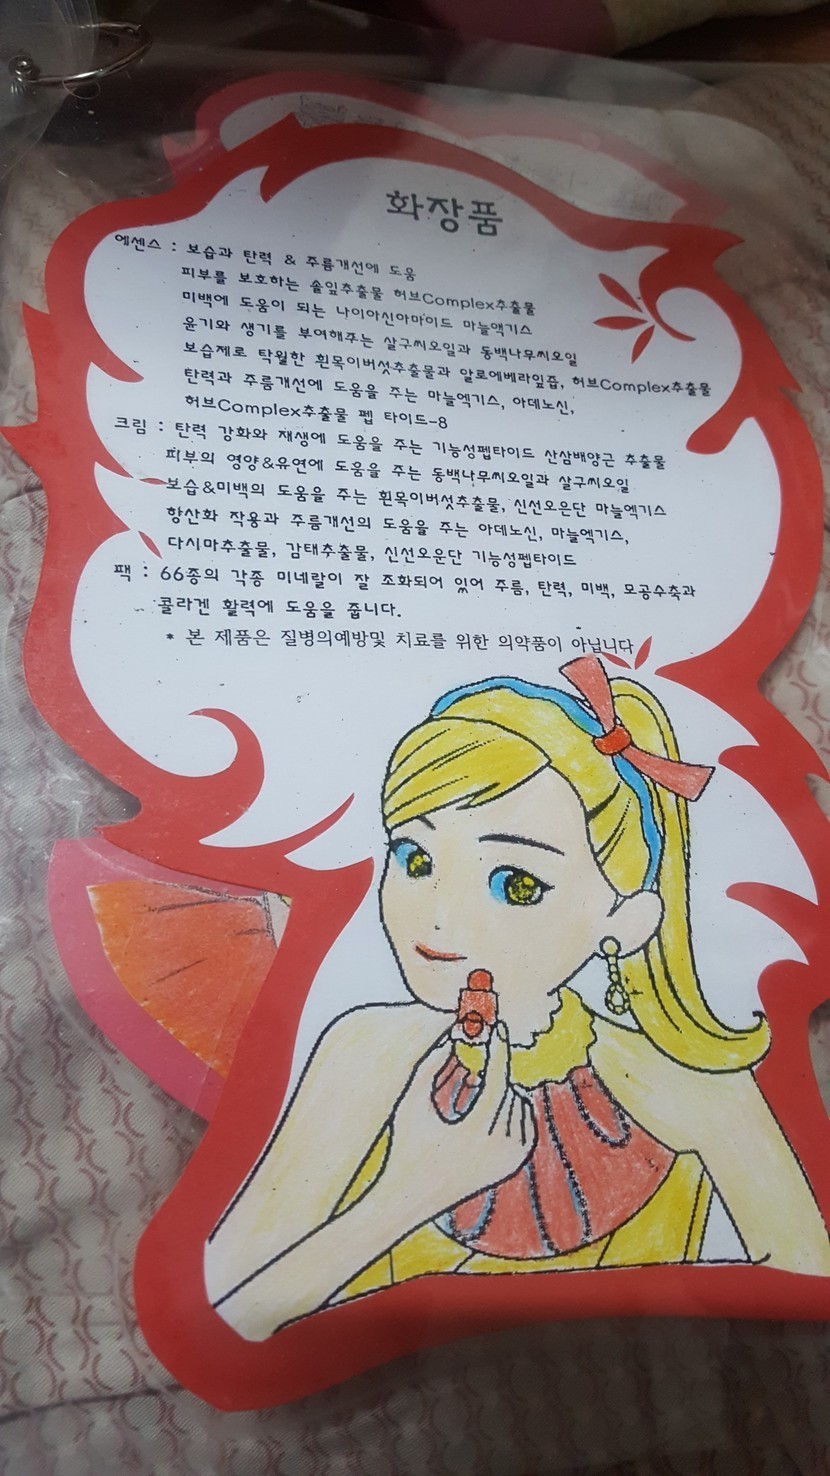 화장품
에센스 : 보습과 탄력 & 주름개선에 도움
피부를 보호하는 솔잎추출물 허브Complex추출물
미백에 도움이 되는 나이아신아마이드 마늘액기스
윤기와 생기를 부여해주는 살구씨오일과 동백나무씨오일
보습제로 탁월한 흰목이버섯추출물과 알로에베라잎즙, 허브Complex추출물
탄력과 주름개선에 도움을 주는 마늘엑기스, 아데노신,
허브Complex추출물 펩 타이드-8
크림 : 탄력 강화와 재생에 도움을 주는 기능성펩타이드 산삼배양근 추출물
피부의 영양&유연에 도움을 주는 동백나무씨오일과 살구씨오일
보습&미백의 도움을 주는 흰목이버섯추출물, 신선오운단 마늘엑기스
항산화 작용과 주름개선의 도움을 주는 아데노신, 마늘엑기스,
다시마추출물, 감태추출물, 신선오운단 기능성펩타이드
팩 : 66종의 각종 미네랄이 잘 조화되어 있어 주름, 탄력, 미백, 모공수축과
콜라겐 활력에 도움을 줍니다.
* 본 제품은 질병의예방및 치료를 위한 의약품이 아닙니다